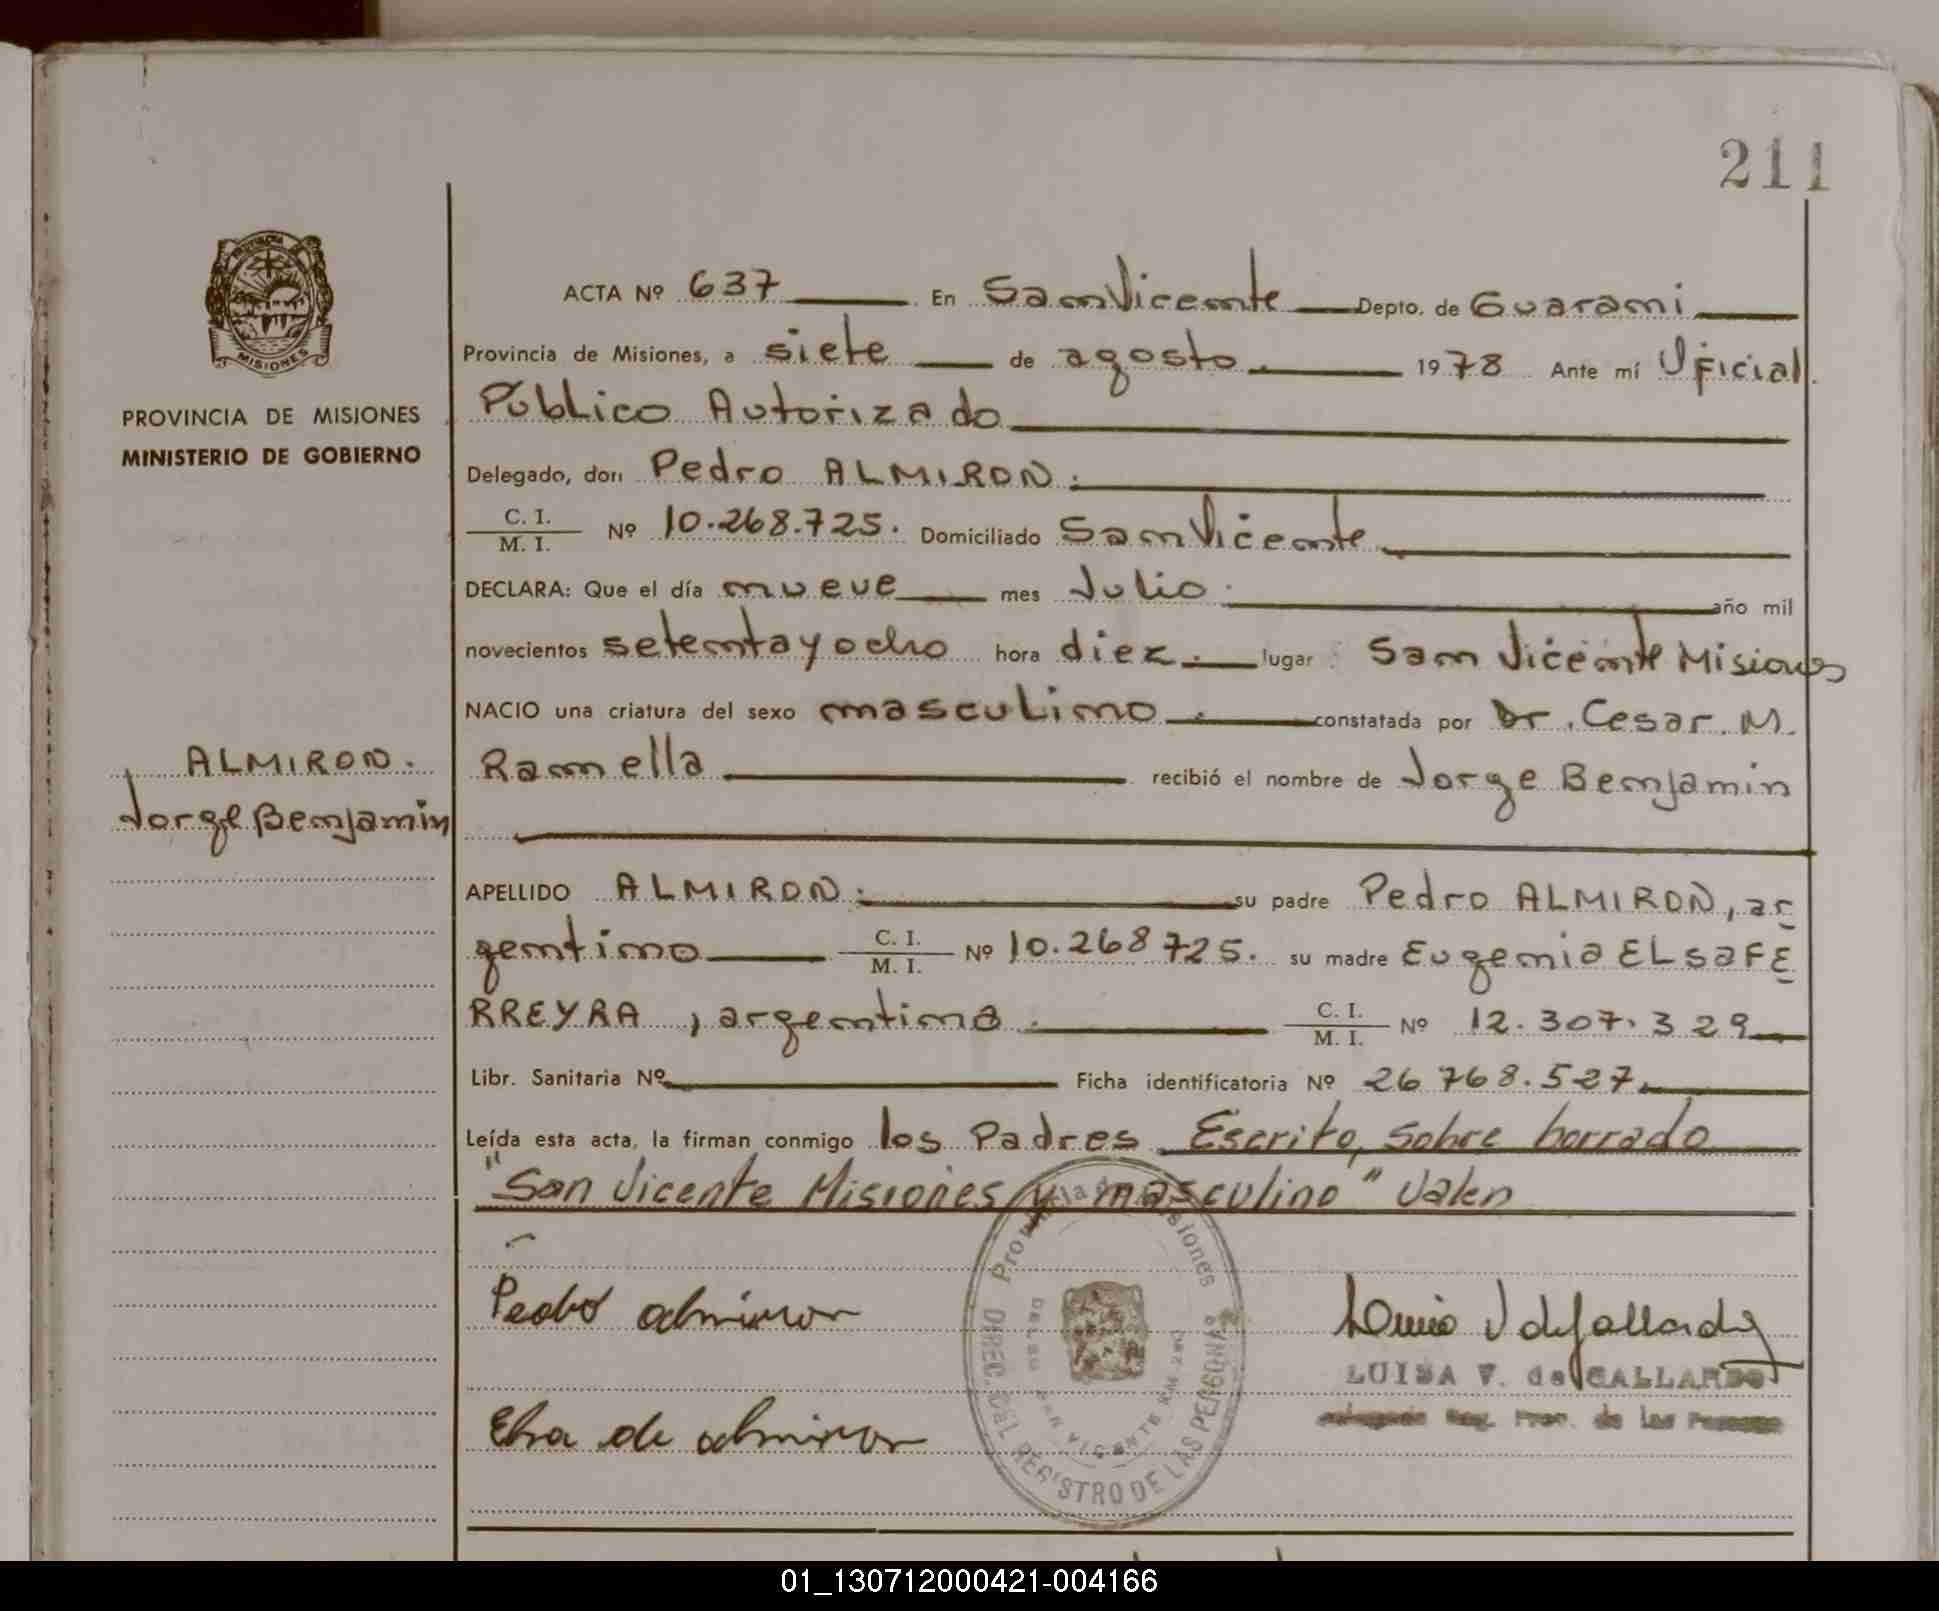 211
PROVINCIA DE
MISIONES
PROVINCIA DE MISIONES
MINISTERIO DE GOBIERNO
ALMIRON.
Jorge Benjamin
ACTA Nº 637 En San Vicente Depto. de Guarani
Provincia de Misiones, a siete de agosto. 1978 Ante mí Oficial
Publico Autorizado
Delegado, don Pedro ALMIRON.
C. I.
M. I. Nº 10.268.725. Domiciliado San Vicente
DECLARA: Que el día nueve mes Julio. año mil
novecientos setenta y ocho hora diez. lugar San Vicente Misiones
NACIO una criatura del sexo masculino. constatada por Dr. Cesar. M.
Ramella recibió el nombre de Jorge Benjamin
APELLIDO ALMIRON. su padre Pedro ALMIRON, ar
gentino C. I.
M. I. Nº 10.268 725. su madre Eugenia ELsa FE
RREYRA, argentina. C. I.
M. I. Nº 12.307.329
Libr. Sanitaria Nº Ficha identificatoria Nº 26 768.527.
Leída esta acta, la firman conmigo los Padres. Escrito, sobre borrado
"San Vicente Misiones y masculino" Valen
Pedro almiron
Elsa de almiron
Provincia de Misiones
DIREC. DEL REGISTRO DE LAS PERSONAS
SAN VICENTE
LUISA V. de GALLARDO
Reg. Prov. de las Personas
01_130712000421-004166